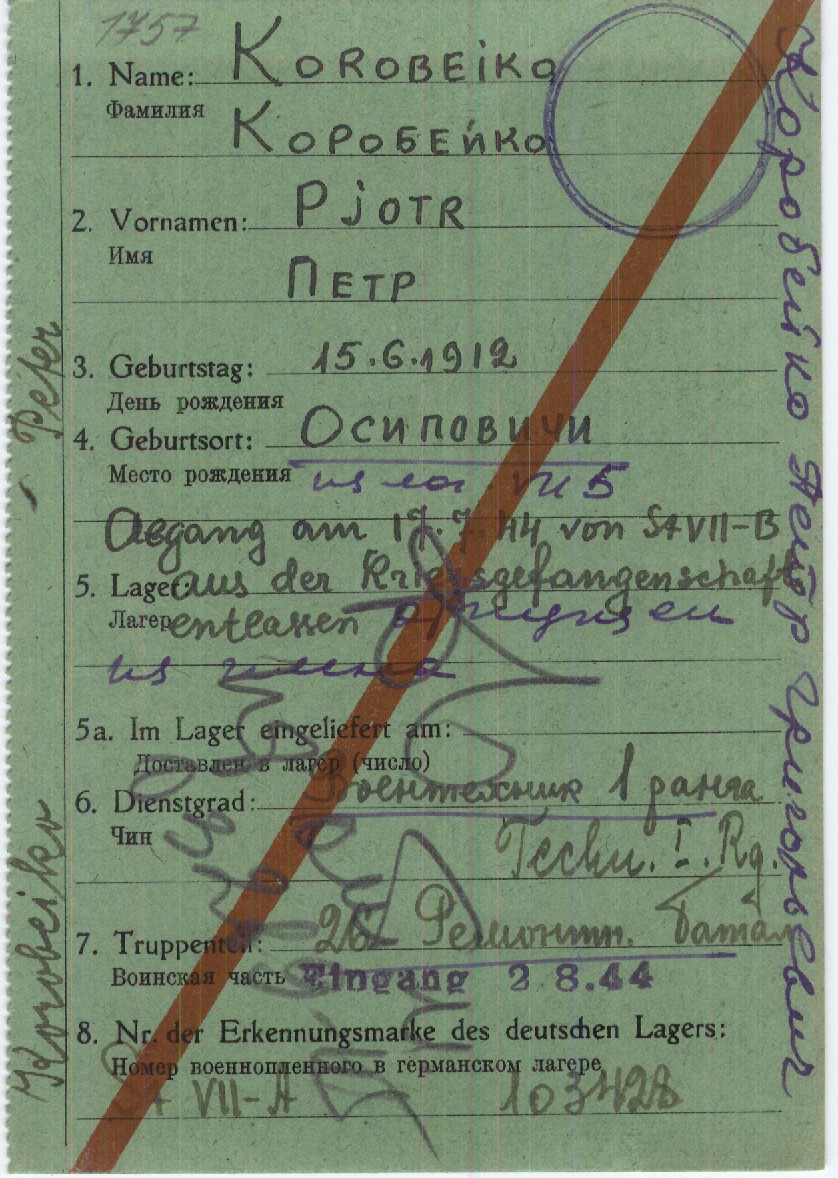 1757
1. Name: KOROBEiKO
Фамилия КОРОБЕЙКО
2. Vornamen: PJOTR
Имя ПЕТР
3. Geburtstag: 15.6.1912
День рождения
4. Geburtsort: ОСИПОВИЧИ
Место рождения из лаг VII Б
Abgang am 17.7.44 von St VII-B
5. Lager: aus der Kriegsgefangenschaft
Лагер entlassen
из плена
5a. Im Lager eingeliefert am:
Доставлен в лагер (число)
6. Dienstgrad: Воентехник 1 ранга
Чин Techn. I. Rg.
7. Truppenteil: 26 Ремонтн. батал
Воинская часть Eingang 2 8.44
8. Nr. der Erkennungsmarke des deutschen Lagers:
Номер военнопленного в германском лагере
VII-A 103428
Коробейко Петр Григорьевич
Korobeiko - Peter